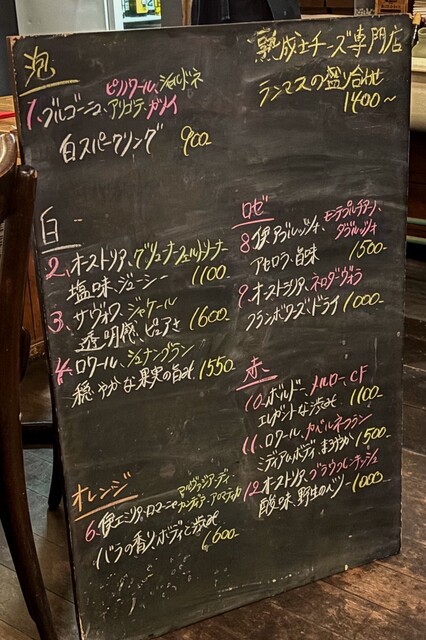 泡
ピノノワール、シャルドネ
1、ブルゴーニュ、アリゴテ、ガメイ
白スパークリング 900
熟成士チーズ専門店
ランマスの盛り合わせ
1400~
白
2、オーストリア、グリューナーフェルトリーナー
塩味、ジューシー 1100
3、サヴォワ、ジャケール
透明感、ピュアさ 1600
4、ロワール、シュナンブラン
穏やかな果実の旨味 1550
オレンジ
マルヴァジア・ディ
カンディア・アロマティカ
6、
バラの香り、ボディと渋味
1600
ロゼ
モンテプルチアーノ・
ダブルッツォ
8、伊、アブルッツォ、
アセロラ、旨味 1500
9、オーストラリア、ネロダヴォラ
フランボワーズ、ドライ 1000
赤、
10、ボルドー、メルロー、CF
エレガントな渋味 1100
11、ロワール、カベルネフラン
ミディアムボディ、まろやか 1500
12、オーストリア、ブラウフレンキッシュ
酸味、野生のベリー 1000